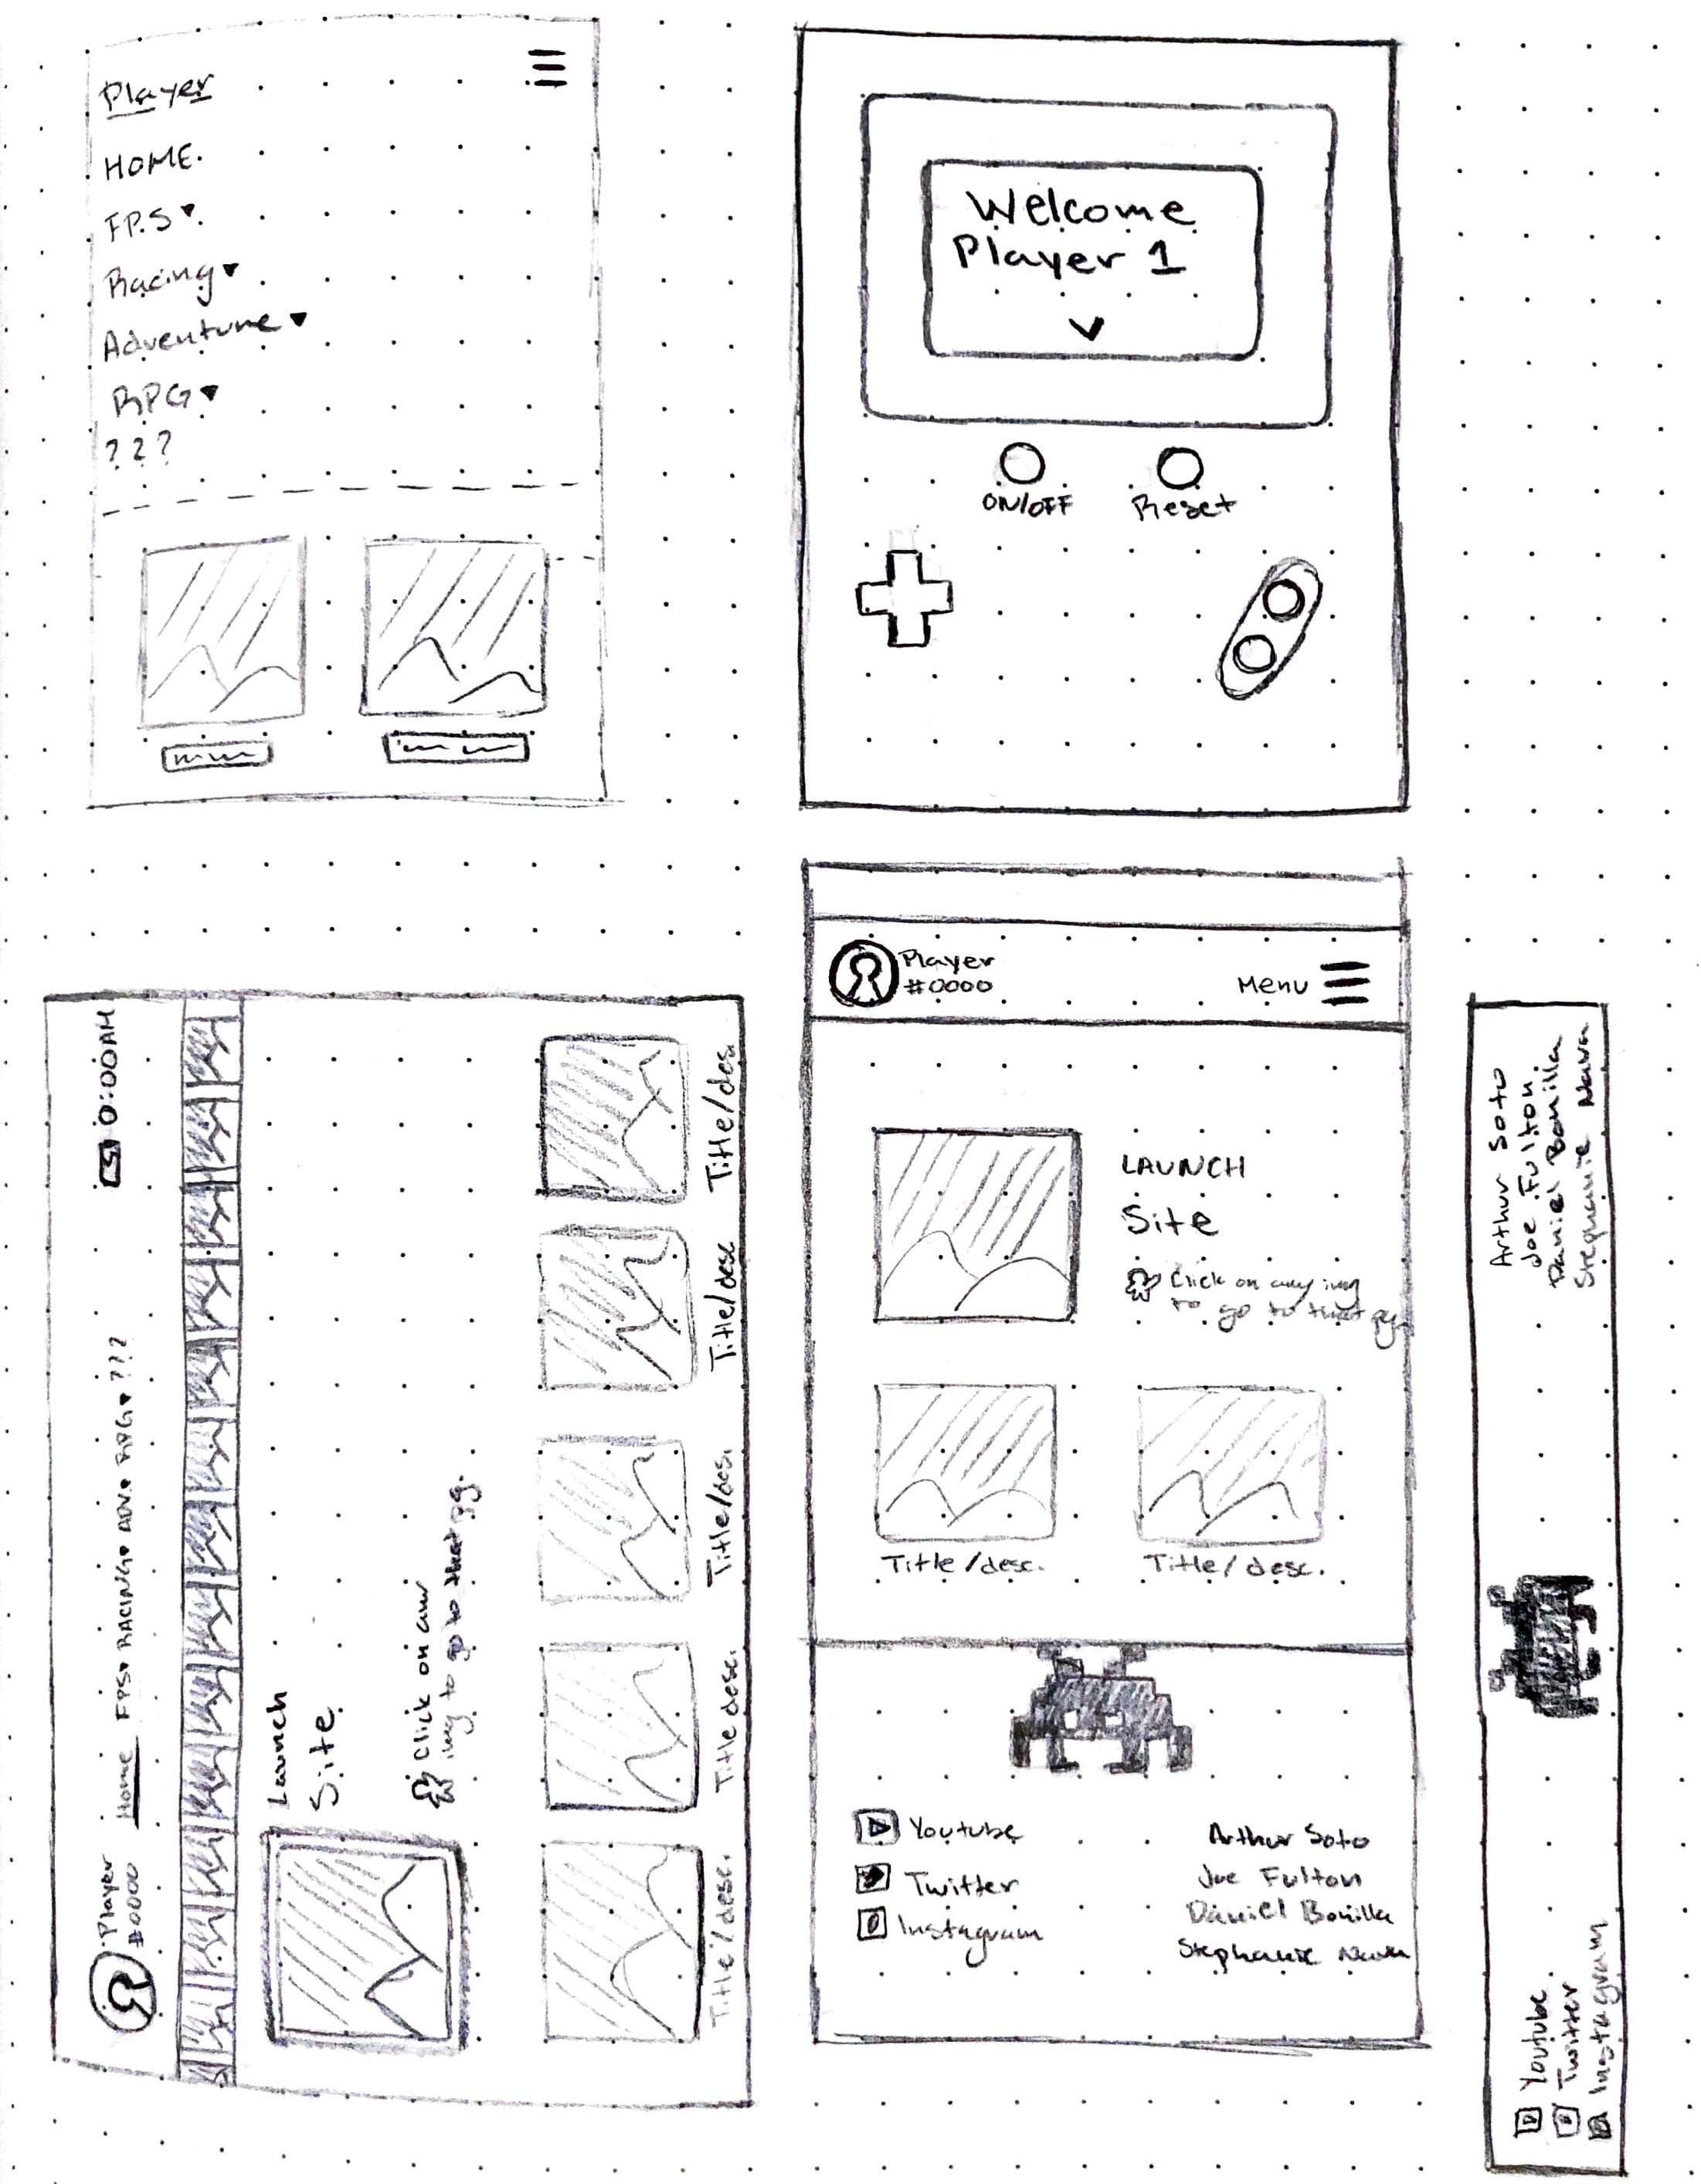 Player
HOME
FPS▾
Racing▾
Adventure▾
RPG▾
???
Welcome
Player 1
ON/OFF
Reset
Player
#0000
Home FPS▾ RACING▾ ADV▾ RPG▾ ???
0:00AM
Launch
Site
Click on any
img to go to that pg.
Title/desc.
Title desc.
Title/des.
Title/desc
Title/des.
Player
#0000
Menu
LAUNCH
Site
Click on any img
to go to that pg.
Title/desc.
Title/desc.
Youtube
Twitter
Instagram
Arthur Soto
Joe Fulton
Daniel Bonilla
Stephanie Nava
Youtube
Twitter
Instagram
Arthur Soto
Joe Fulton
Daniel Bonilla
Stephanie Nava